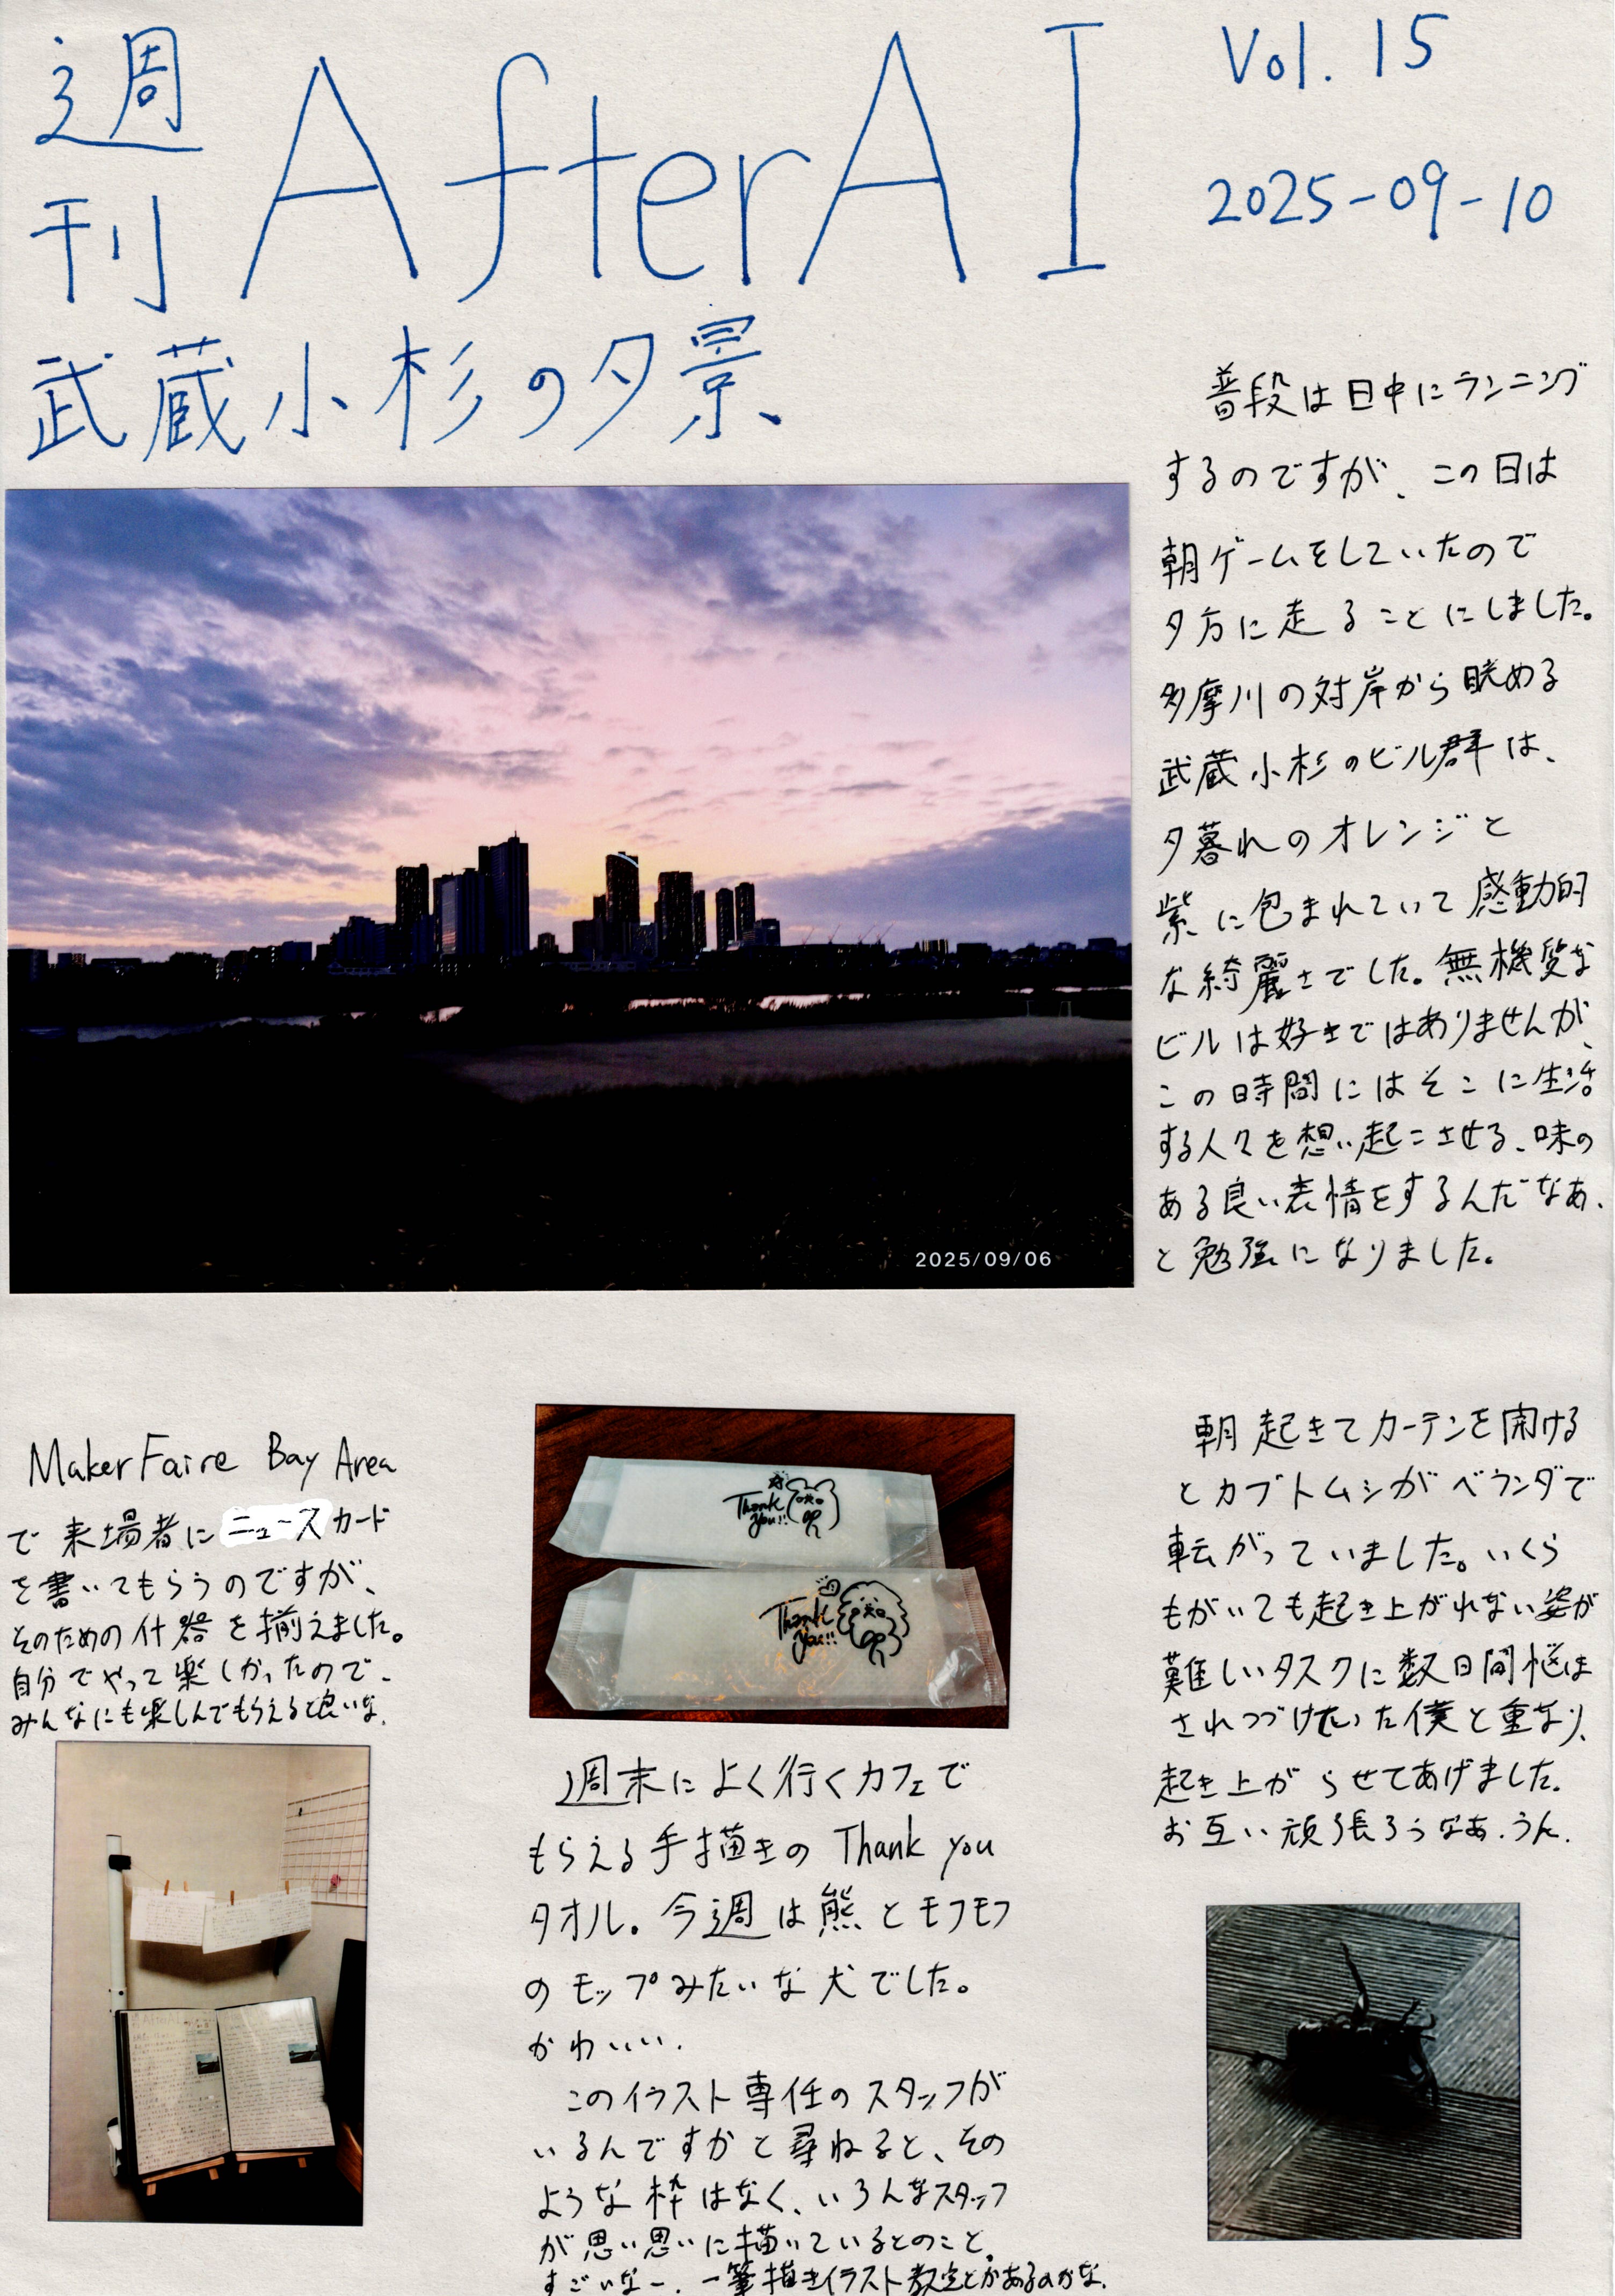 週刊 AfterAI
Vol. 15
2025-09-10
武蔵小杉の夕景
普段は日中にランニング
するのですが、この日は
朝ゲームをしていたので
夕方に走ることにしました。
多摩川の対岸から眺める
武蔵小杉のビル群は、
夕暮れのオレンジと
紫に包まれていて感動的
な綺麗さでした。無機質な
ビルは好きではありませんが、
この時間にはそこに生活
する人々を想い起こさせる、味の
ある良い表情をするんだなあ、
と勉強になりました。
2025/09/06
MakerFaire Bay Area
で来場者にニュースカード
を書いてもらうのですが、
そのための什器を揃えました。
自分でやって楽しかったので、
みんなにも楽しんでもらえると良いな。
AfterAI
Thank
You!!
Thank
You!!
週末によく行くカフェで
もらえる手描きのThank you
タオル。今週は熊とモフモフ
のモップみたいな犬でした。
かわいい。
このイラスト専任のスタッフが
いるんですかと尋ねると、その
ような枠はなく、いろんなスタッフ
が思い思いに描いているとのこと。
すごいなー。一筆描きイラスト教室とかあるのかな。
朝起きてカーテンを開ける
とカブトムシがベランダで
転がっていました。いくら
もがいても起き上がれない姿が
難しいタスクに数日間悩ま
されつづけていた僕と重なり、
起き上がらせてあげました。
お互い頑張ろうなあ、うん。